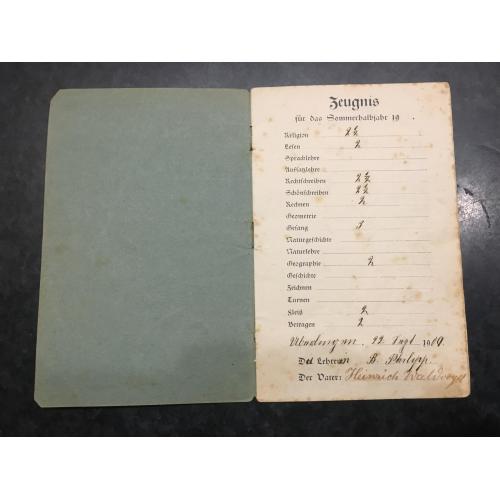 Zeugnis
für das Sommerhalbjahr 19 .
Religion 2½
Lesen 2
Sprachlehre
Aufsatzlehre
Rechtschreiben 2½
Schönschreiben 2½
Rechnen 2
Geometrie
Gesang 3
Naturgeschichte
Naturlehre
Geographie 2
Geschichte
Zeichnen
Turnen
Fleiß 2
Betragen 2
22. Sept 19
Lehrerin B. Philipp.
Der Vater: Heinrich